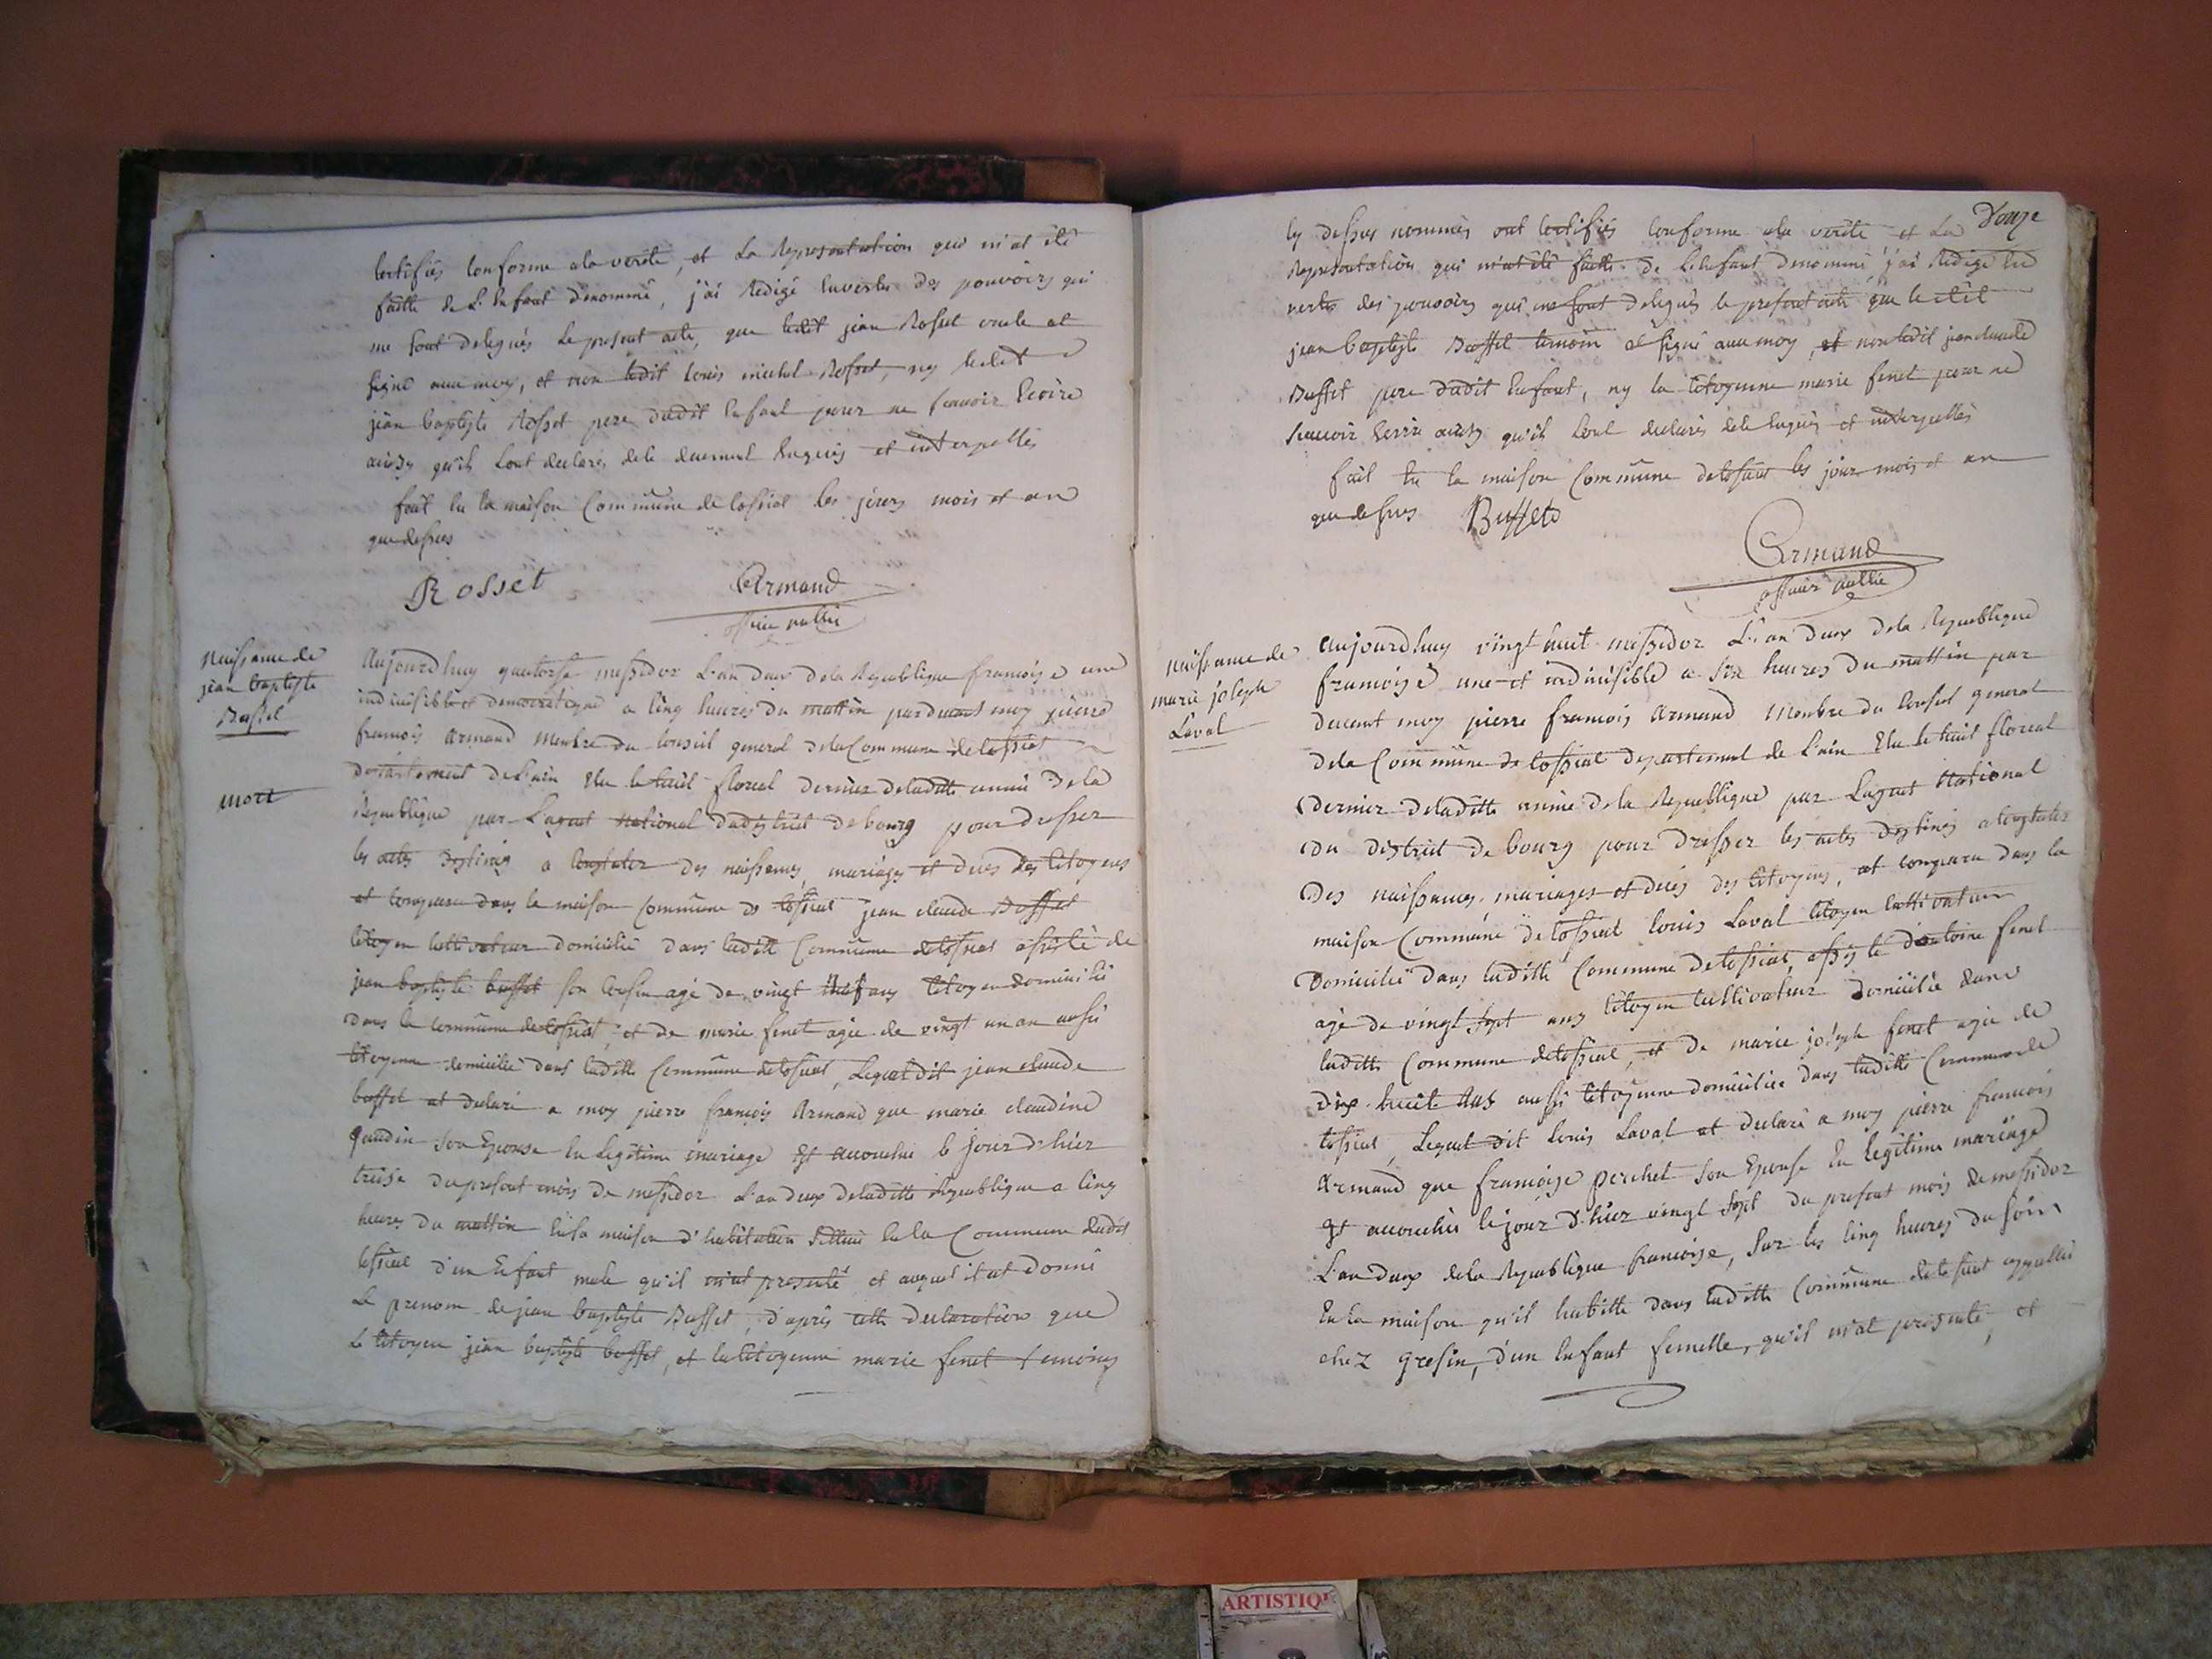 certifiés conforme ala verité, et La Representation qui m'at été
faitte de L'Enfant denommé, j'ai Redigé Envertu des pouvoirs qui
me sont delegués Le present acte, que ledit jean Rosset oncle at
signé avec moy, et non ledit Louis michel Rosset, ny ledit
jean baptiste Rosset pere dudit Enfant pour ne scavoir Ecrire
ainsy qu'ils Lont declarés dele duement Enquis et interpellés
fait En la maison Commune de lossiat les jours mois et an
que dessus
Rosset Armand
officier public
Naissance de
jean baptiste
Buffet
mort
Aujourdhuy quatorse messidor L'an deux dela Republique francoise une
indivisible et democratique a Cinq heures du mattin pardevant moy pierre
francois Armand Membre du Conseil general dela Commune de lossiat
departement de L'ain Elu le huit floreal dernier deladitte année dela
Republique par L'agent National dudistrict de bourg pour dresser
les actes destinés a Constater des naissances, mariages et deces des Citoyens
at comparu dans la maison Commune de lossiat jean claude Buffet
Citoyen Cultivateur domicilié dans laditte Commune de lossiat assisté de
jean baptiste buffet son Cousin agé de vingt neuf ans Citoyen domicilié
dans la commune de lossiat, et de marie fenet agée de vingt un an aussi
Citoyenne domiciliée dans laditte Commune de lossiat, Lequel dit jean claude
buffet at declaré a moy pierre francois Armand que marie claudine
gaudin son Epouse En Legitime mariage Est accouchée le jour d'hier
treise du present mois de messidor L'an deux deladitte Republique a Cinq
heures du mattin En sa maison d'habitation scituée En la Commune dudit
lossiat d'un Enfant male qu'il m'at presenté et auquel il at donné
Le prenom de jean baptiste Buffet, d'après cette Declaration que
Le Citoyen jean baptiste buffet, et la Citoyenne marie fenet temoins
Douze
Cy dessus nommés ont certifiés conforme ala verité et La
Representation qui m'at été faitte de L'Enfant denommé j'ai Redigé En
vertu des pouvoirs qui me sont delegués le present acte que ledit
jean baptiste Buffet temoin at signé avec moy, et non ledit jean claude
Buffet pere dudit Enfant, ny la Citoyenne marie fenet pour ne
scavoir Ecrire ainsy qu'ils Lont declarés dele Enquis et interpellés
fait En la maison Commune de lossiat les jour mois et an
que dessus Buffet
Armand
officier public
Naissance de
marie joseph
Laval
Aujourdhuy vingt huit messidor L'an deux dela Republique
francoise une et indivisible a six heures du mattin par
devant moy pierre francois Armand Membre du Conseil general
dela Commune de lossiat departement de L'ain Elu le huit floreal
Dernier deladitte année dela Republique par Lagent National
du district de bourg pour dresser les actes destinés a Constater
Des naissances, mariages et deces des Citoyens, at comparu dans la
maison Commune de lossiat Louis Laval Citoyen Cultivateur
Domicilié dans laditte Commune de lossiat, assisté d'antoine fenet
agé de vingt sept ans Citoyen Cultivateur domicilié dans
laditte Commune de lossiat, et de marie joseph fenet agée de
Dix huit Ans aussi Citoyenne domiciliée dans laditte Commune de
lossiat, Lequel dit Louis Laval at declaré a moy pierre francois
Armand que francoise perchet son Epouse En Legitime mariage
Est accouchée le jour d'hier vingt sept du present mois de messidor
L'an deux dela Republique francoise, sur les Cinq heures du soir
En la maison qu'il habitte dans laditte Commune de lossiat appellée
chez Grosin, d'un Enfant femelle, qu'il m'at presenté, et
ARTISTIQ